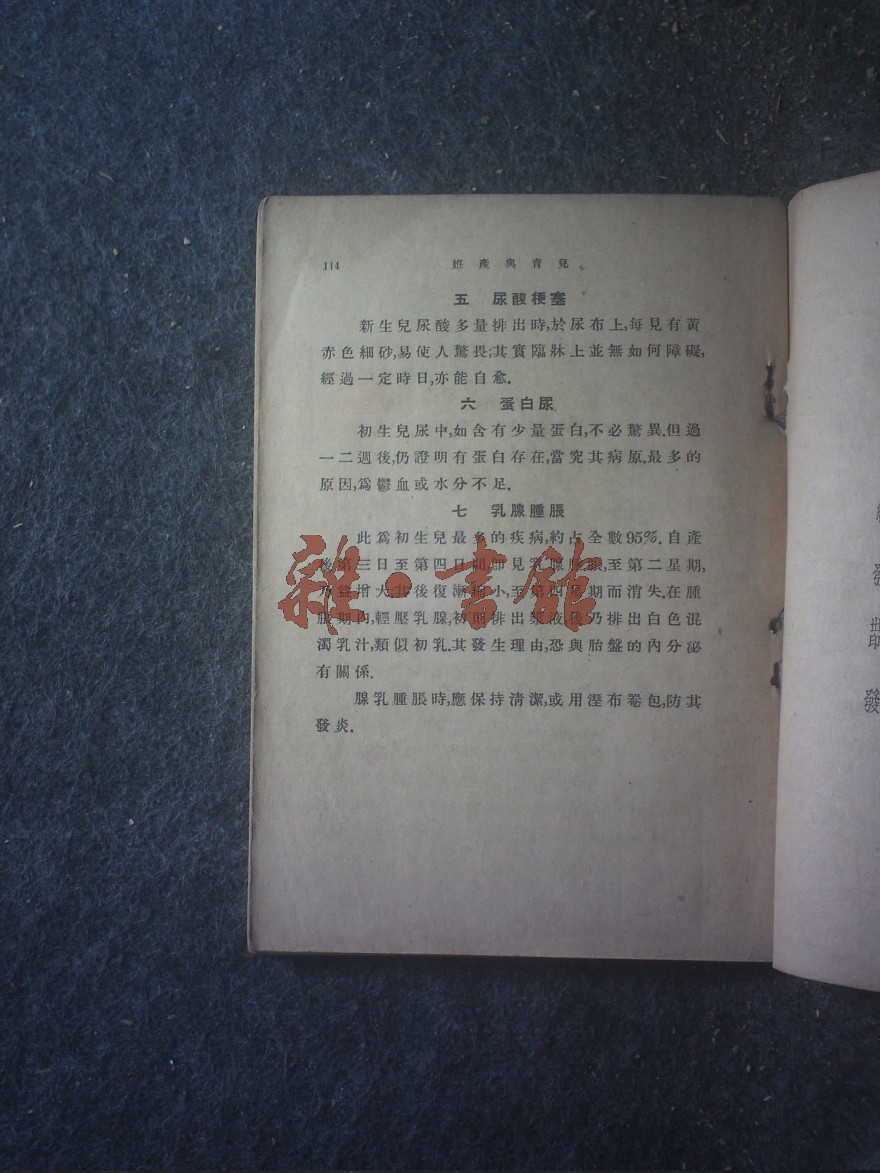 114 姙產與育兒
五 尿酸梗塞
新生兒尿酸多量排出時,於尿布上,每見有黃
赤色細砂,易使人驚畏;其實臨牀上並無如何障礙,
經過一定時日,亦能自愈.
六 蛋白尿
初生兒尿中,如含有少量蛋白,不必驚異.但過
一二週後,仍證明有蛋白存在,當究其病原.最多的
原因,爲鬱血或水分不足.
七 乳腺腫脹
此爲初生兒最多的疾病,約占全數95%.自產
後第三日至第四日間,卽見乳腺腫脹,至第二星期,
乃益增大,其後復漸縮小,至第四星期而消失.在腫
脹期內,輕壓乳腺,初時排出漿液,後乃排出白色混
濁乳汁,類似初乳.其發生理由,恐與胎盤的內分泌
有關係.
腺乳腫脹時,應保持清潔,或用溼布罨包,防其
發炎.
雜·書館
發
發